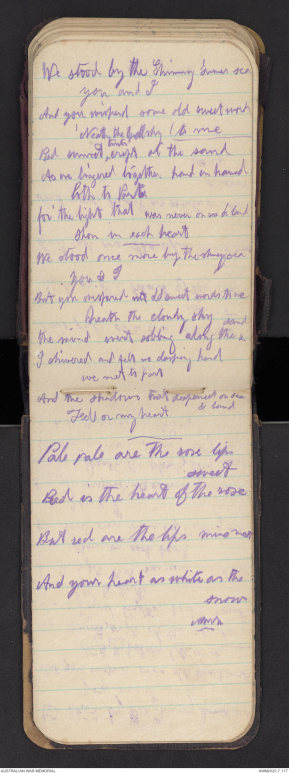 We stood by the Shimmery Summer sea
you and I
And you whisperd some old sweet words
'Neath the sky to me
Red sunset, crept at the sand
As we lingered together hand in hand
Loth to Part
for the light that was never on sea & land
Shon in each heart
We stood once more by the sea
You & I
But you whispered no old sweet words to me
Beneath the cloudy sky
the wind went sobbing along the sand
I shivered and felt no clasping hand
we met to part
And the shadows that deepened on sea
& land
Fell on my heart
Pale pale are the rose lips
sweet
Red is the heart of the rose
But red are the lips mine meet
And your heart as white as the
snow
AUSTRALIAN WAR MEMORIAL
AWM2020.7.117